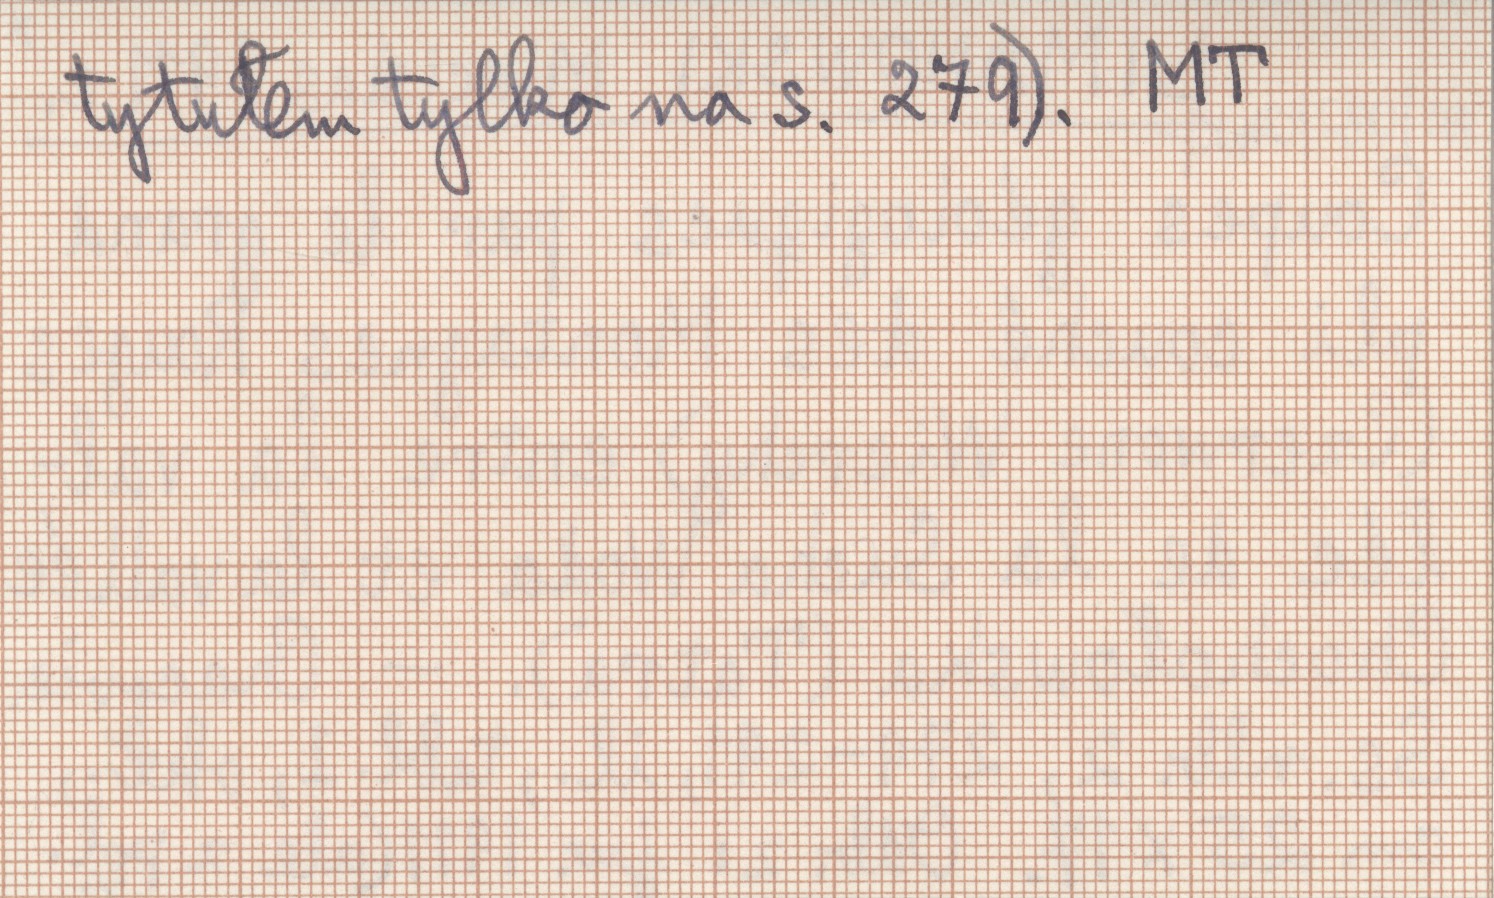 tytułem tylko na s. 279). MT